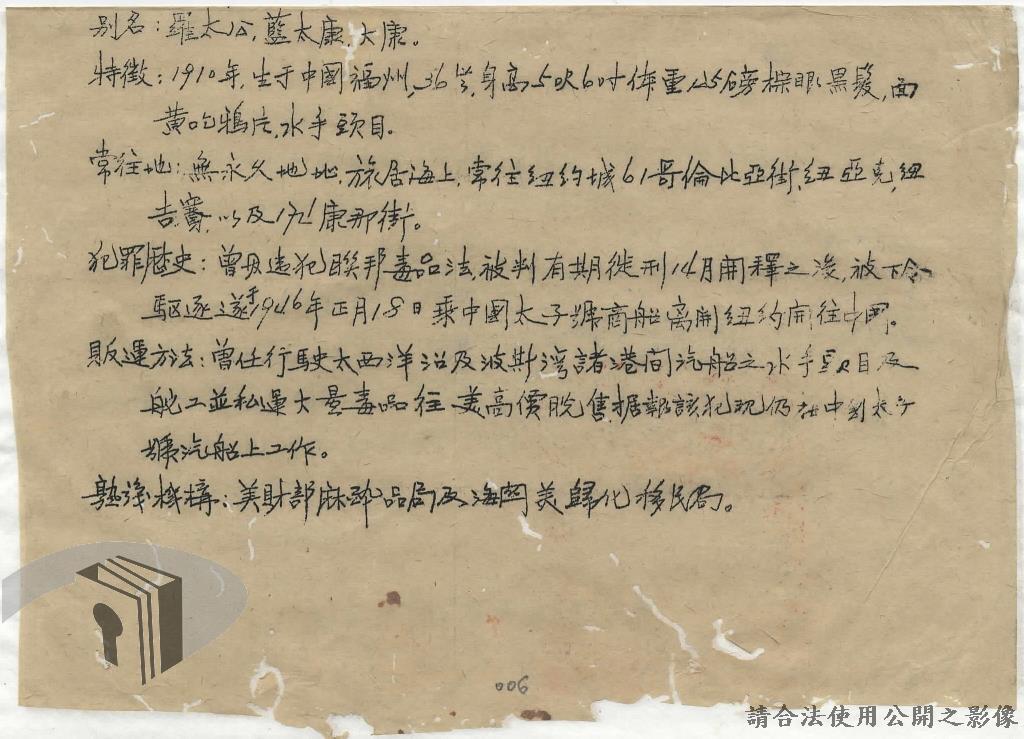 别名：羅太公,藍太康,大康。
特徵：1910年,生于中國福州,36歲,身高5呎6吋体重125磅棕眼黑髮,面
黄吃鴉片,水手頭目.
常往地：無永久地址,旅居海上,常往紐約城61哥倫比亞街,紐亞克,紐
吉賽,以及171康那街。
犯罪歷史：曾因违犯聯邦毒品法,被判有期徒刑14月開釋之後,被下令
驅逐遂于1946年正月18日乘中國太子號商船离開紐約開往中國。
販運方法：曾任行駛大西洋沿及波斯湾諸港間汽船之水手頭目及
舵工並私運大量毒品往美高價脫售.据報該犯現仍在中國太子
號汽船上工作。
熟諳機構：美財部麻醉品局及海関美歸化移民局。
006
請合法使用公開之影像